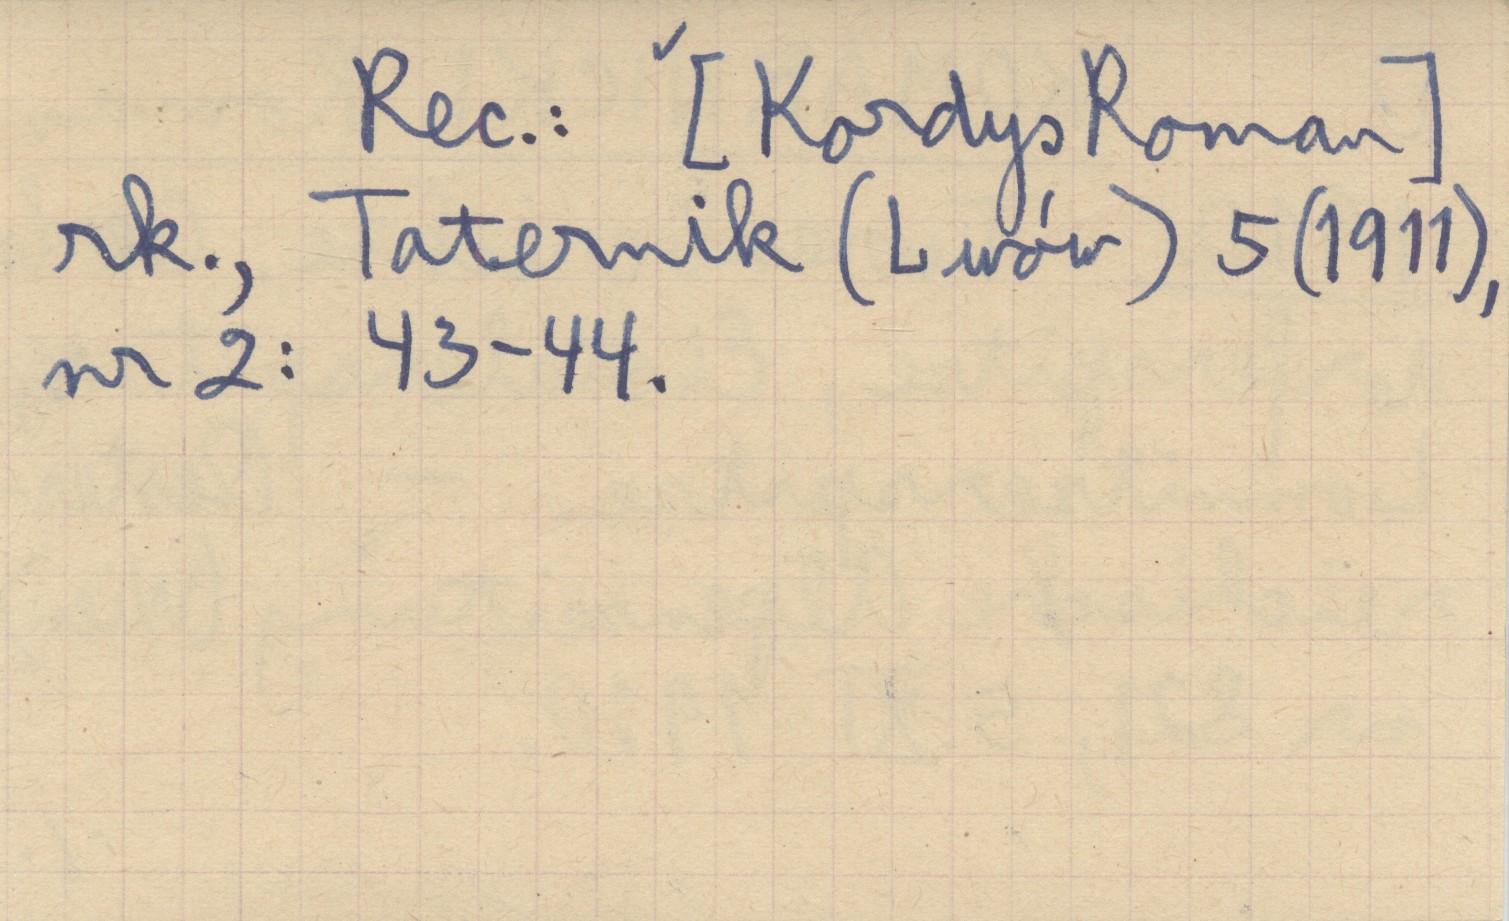 Rec.: ✓[Kordys Roman]
rk., Taternik (Lwów) 5(1911),
nr 2: 43-44.